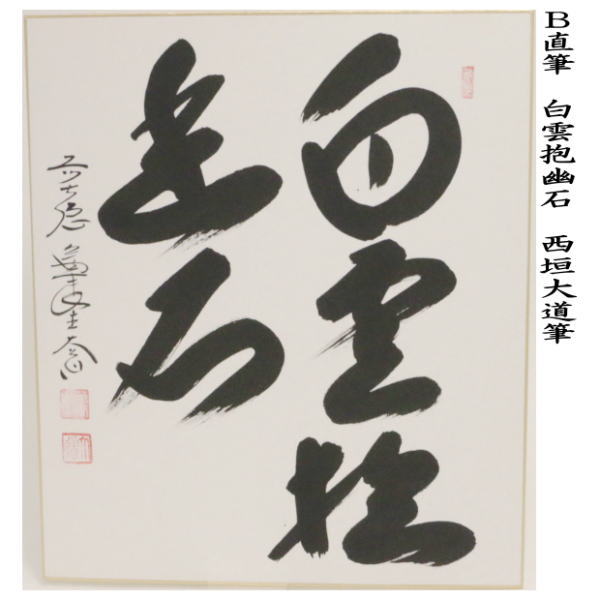 B直筆 白雲抱幽石 西垣大道筆
白雲抱
幽石